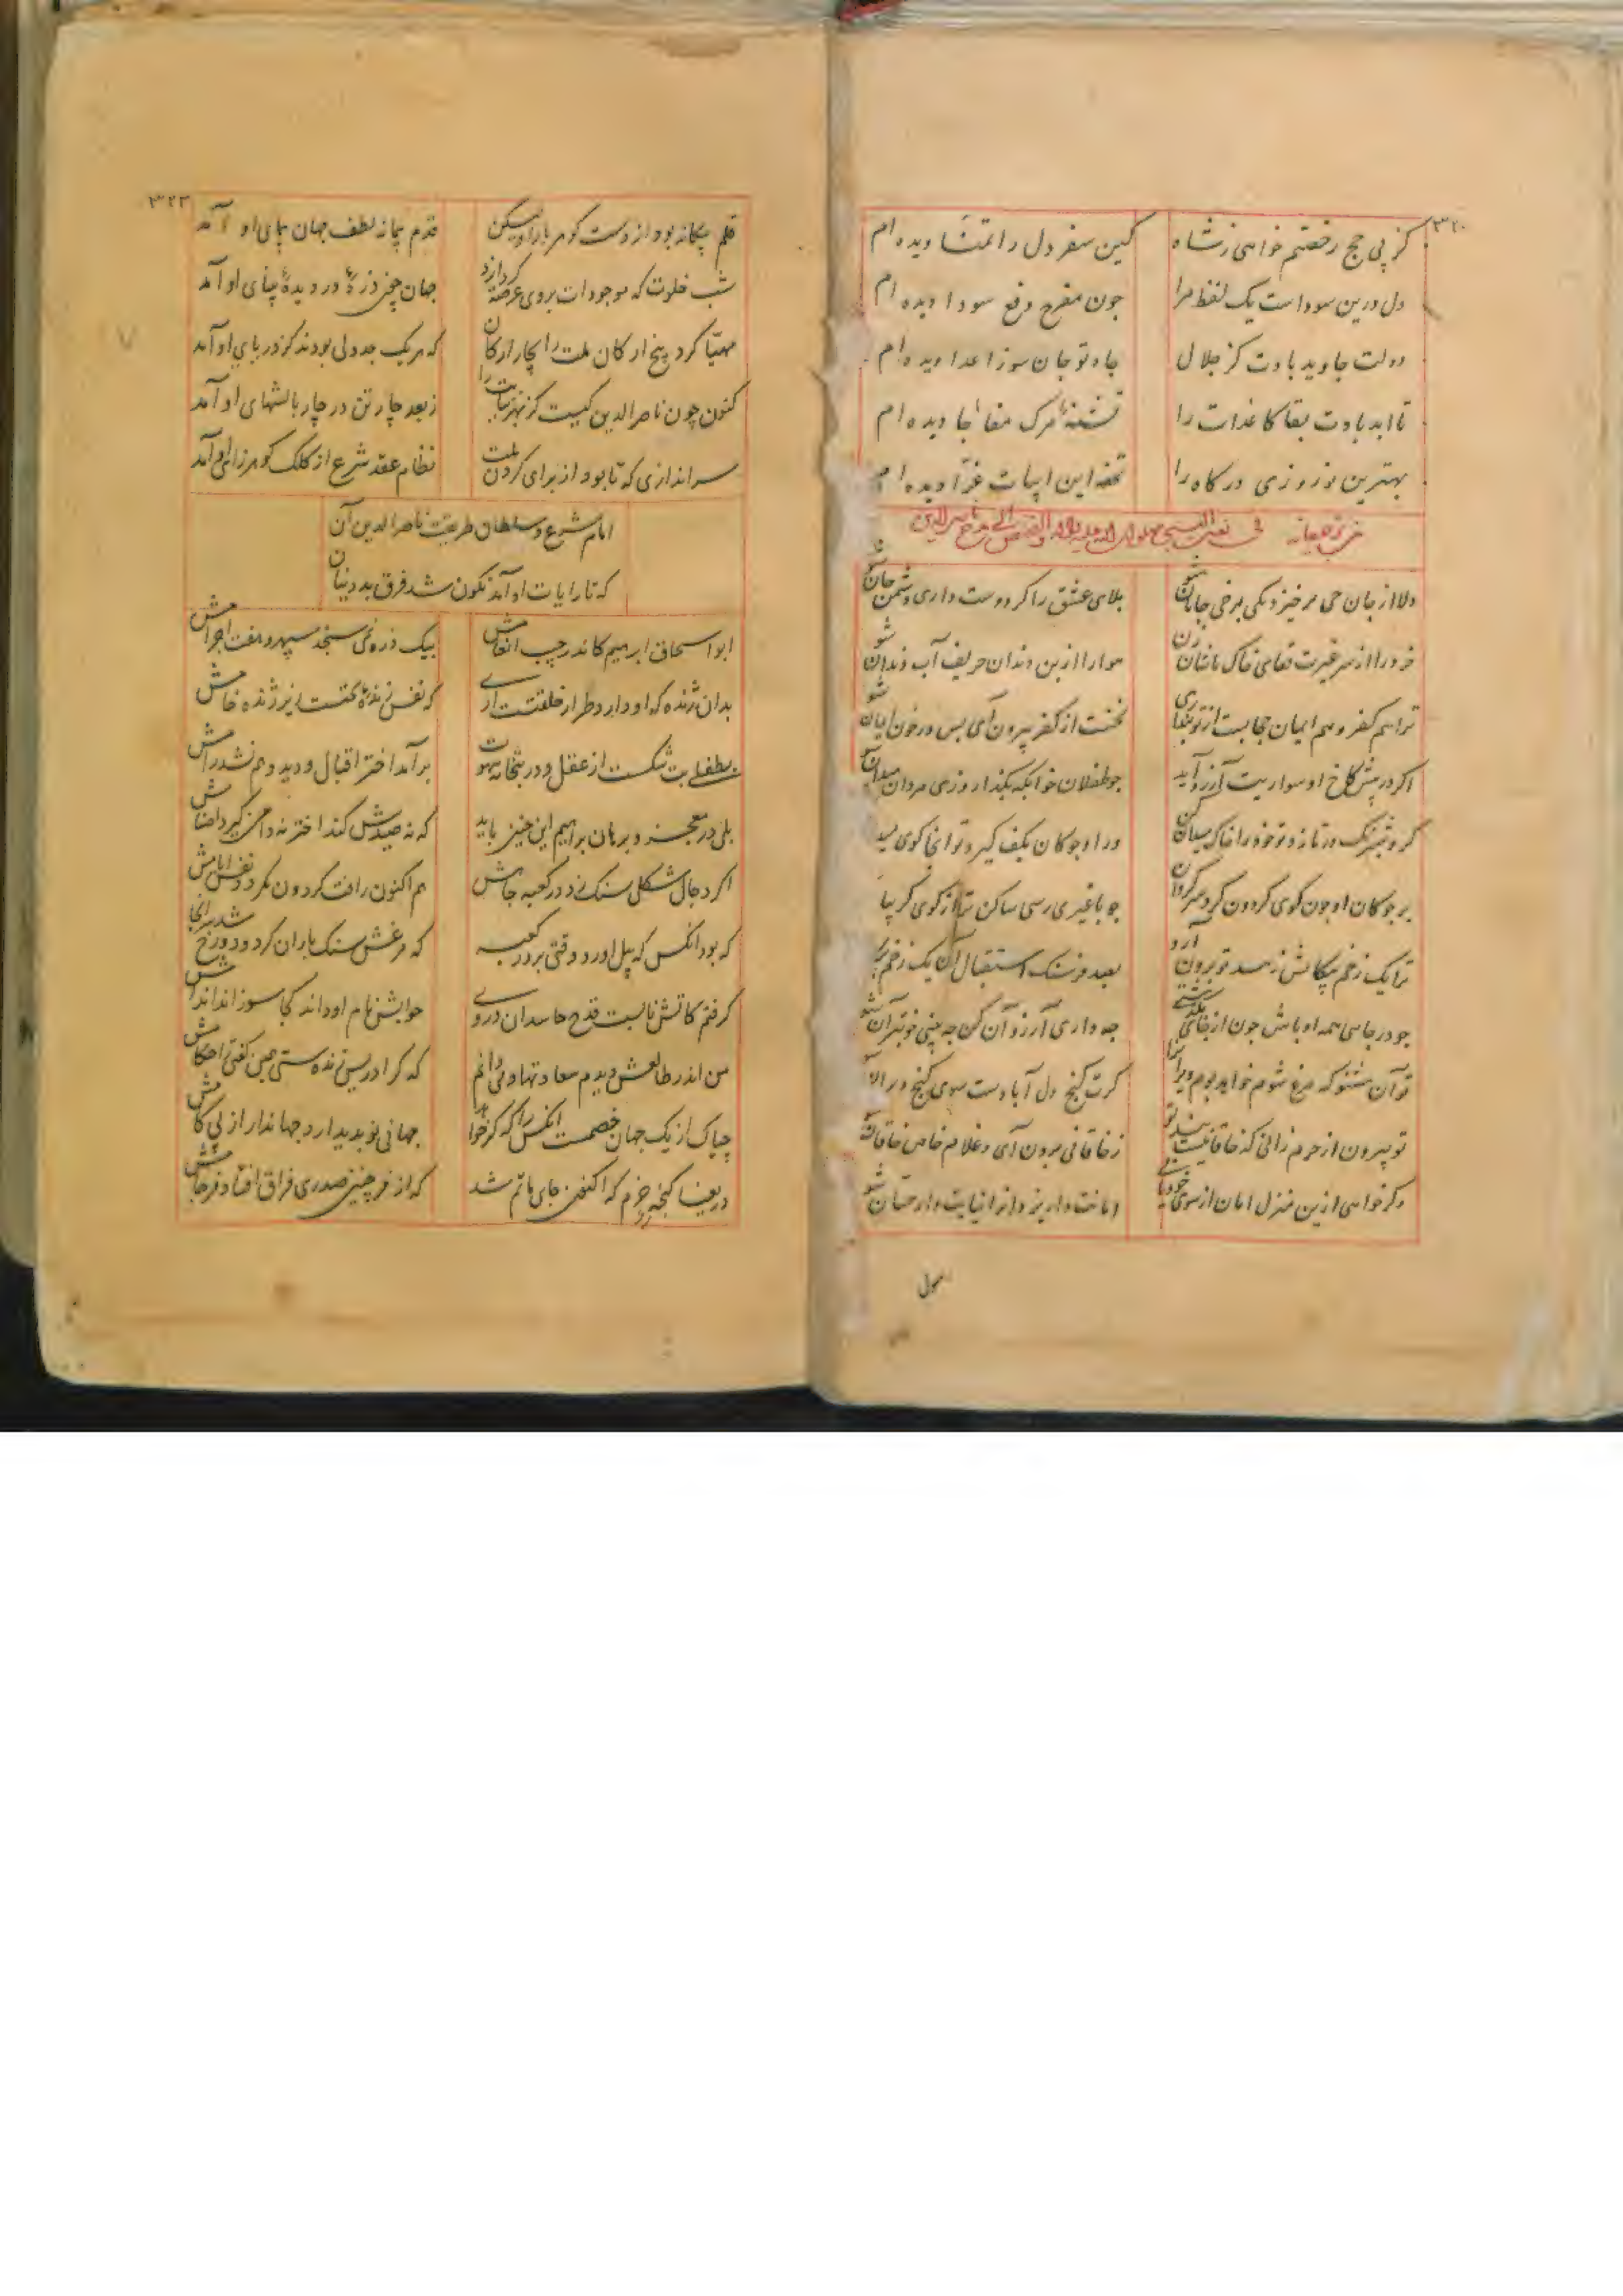 ۳۲۰
کز پی حج رخصتم خواهی ز شاه کین سفر دل را تمنا دیده ام
دل درین سوداست یک لفظ مرا جون مفرح دفع سودا دیده ام
دولت جاوید بادت کز جلال جاه تو جان سوز اعدا دیده ام
تا ابد بادت بقا کاعدات را تشنه مرک مفاجا دیده ام
بهترین نوروزی درکاه را تحفه این ابیات غرا دیده ام
دلا از جان جی برخیزد یکی برخی جانان شو بلای عشق را کر دوست داری دشمن جان شو
خرد را از سر غیرت قفای خاک پاشان زن هوا را از بن دندان حریف آب دندان شو
ترا هم کفر و هم ایمان حجابست ار تو عیاری نخست از کفر بیرون آی بس در خون ایمان شو
اکر در پیش کاخ او سواریت آرزو آید جو طفلان خوابکه بکذار و زی مردان میدان
کر و شبرنک در تازد تو خود را خاک میدان کن ور او جوکان بکف کیرد تو انجا کوی
بر جوکان او جون کوی کردون کرد سرکردان جو با غیری رسی ساکن تر از کوی کریبان
ترا یک زخم پیکانش ز بند تو برون آرد بصد فرسنک استقبال آن یک زخم
جو در جایی همه او باش جون از جای بکذشتی جه داری آرزو آن کن جه بینی خوبتر آن شو
تو آن مشنو که مرغ شوم خواهد بوم ویرانرا کرت کنج دل آبادست سوی کنج
تو بیرون از حرم زانی که خاقانیست بند تو ز خاقانی برون آی و غلام خاص خاقان
وکر خواهی ازین منزل امان از سوی خود یابی امانت دار یزدانرا نیابت دار حسان شو
۳۲۳
قلم بیکانه بود از دست کوهر بار او لیکن قدم پیمانه نطف جهان پیمای او آمد
شب خلوت که موجودات بروی عرضه کرد ایزد جهان جون ذرهٔ در دیدهٔ بینای او آمد
مهیا کرد پنج ارکان ملت را بچار ارکان که هر یک جدولی بودند کز دریای او آمد
کنون چون ناصرالدین کیست کز بهر نیابت را ز بعد چار تن در چار بالشهای او آمد
سراندازی که تا بود از برای کردن ملت نظام عقد شرع از کلک کوهرزای او آمد
امام شرع و سلطان طریقت ناصرالدین آن
که تا رایات او آمد نکون شد فرق بد دینان
ابو اسحاق ابرهیم کاندر جیب انعامش بیک ذره نمی سنجد سپهر و هفت اجرامش
بدان ژنده که او دارد طراز خلقتست آری که نفس زندهٔ کتست زیر ژنده خامش
بطفلی بت شکست از عقل و در بتخانه شهوت برآمد اختر اقبال و دید و هم نشد رامش
بلی در معجز و برهان براهیم این چنین باید که نه صیدش کند اختر نه دامن کیرد اصنامش
اکر دجال شکلی سنک زد در کعبه جاهش هم اکنون رافت کردون نکرد دفع ایامش
که بود انکس که پیل اورد وقتی بر در کعبه که مرغش سنک باران کرد و دوزخ شد سرانجامش
کرفتم کاتش نابست قدح حاسدان در وی جو ابنش نام او داند کجا سوزاند اندامش
من اندر طالعش دیدم سعادتها و می دانم که کر ادریس زنده ستی همین کفتی احکامش
چه باک از یک جهان خصمست انکس را که کر خواهد جهانی نو پدید ارد جهاندار از پی کامش
دریغا کنجه خرم که اکنون جای ماتم شد که از فر چنین صدری فراق افتاد فرجامش